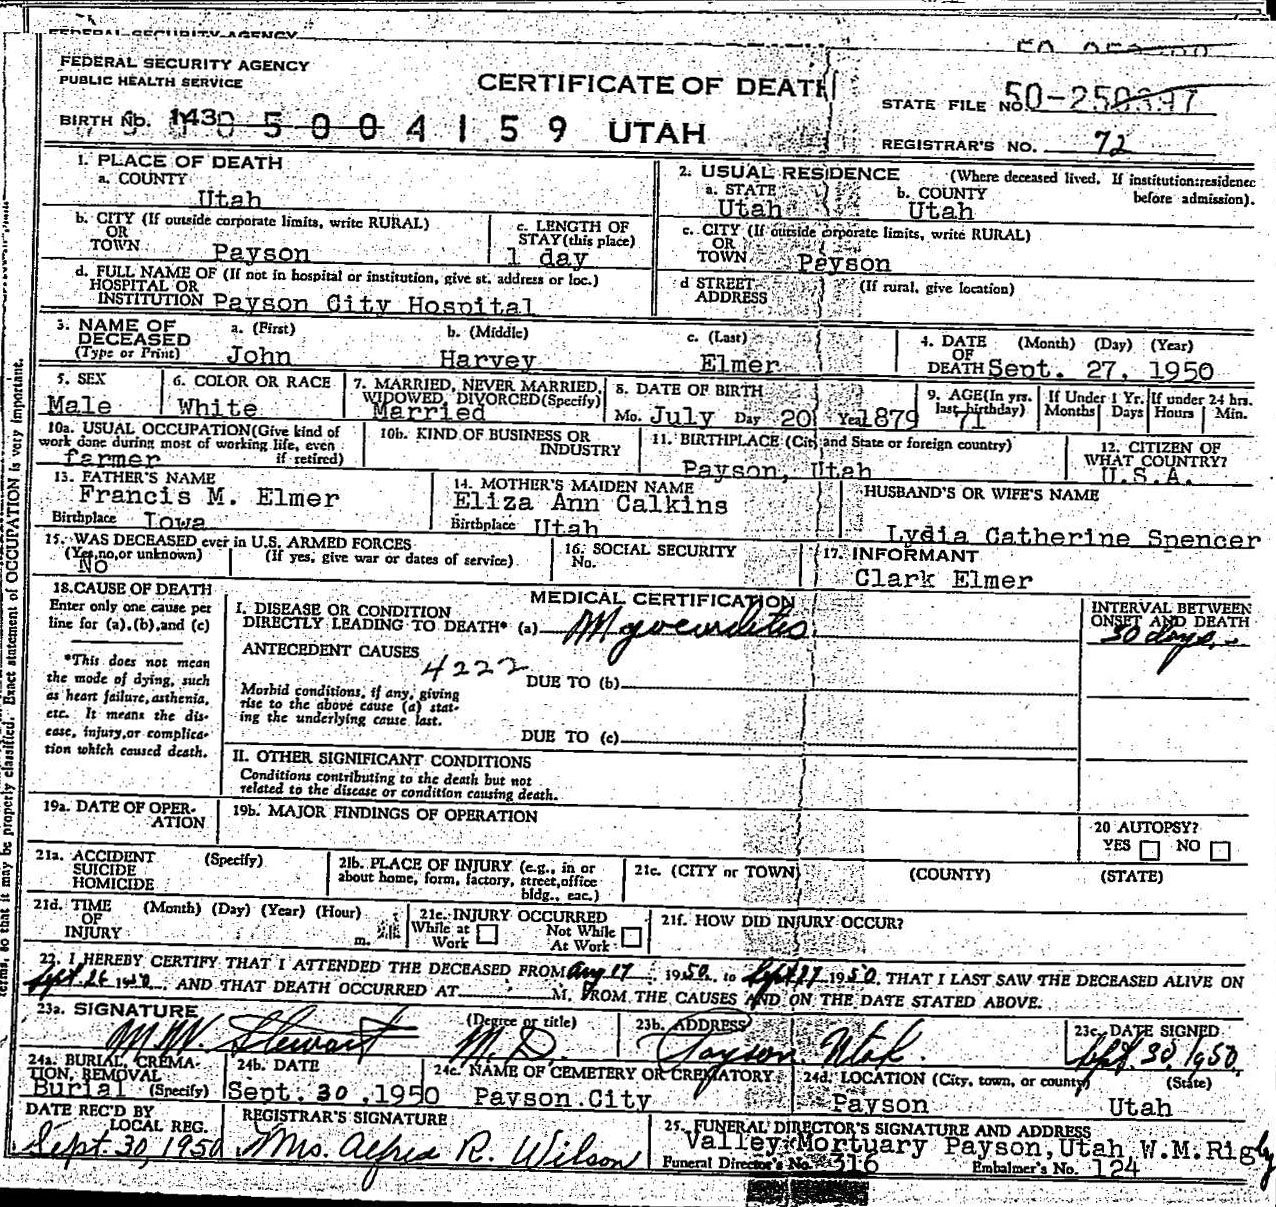 FEDERAL SECURITY AGENCY
FEDERAL SECURITY AGENCY
PUBLIC HEALTH SERVICE
CERTIFICATE OF DEATH
STATE FILE NO.
BIRTH No. 143 0 5 0 0 4 1 5 9 UTAH
REGISTRAR'S NO. 72
1. PLACE OF DEATH
a. COUNTY
Utah
2. USUAL RESIDENCE (Where deceased lived. If institution:residence before admission).
a. STATE
Utah
b. COUNTY
Utah
b. CITY (If outside corporate limits, write RURAL)
OR
TOWN Payson
c. LENGTH OF
STAY (this place)
1 day
c. CITY (If outside orporate limits, write RURAL)
OR
TOWN Payson
d. FULL NAME OF (If not in hospital or institution, give st. address or loc.)
HOSPITAL OR
INSTITUTION Payson City Hospital
d STREET (If rural, give location)
ADDRESS
3. NAME OF
DECEASED
(Type or Print)
a. (First)
John
b. (Middle)
Harvey
c. (Last)
Elmer
4. DATE (Month) (Day) (Year)
OF
DEATH Sept. 27, 1950
5. SEX
Male
6. COLOR OR RACE
White
7. MARRIED, NEVER MARRIED,
WIDOWED, DIVORCED (Specify)
Married
8. DATE OF BIRTH
Mo. July Day 20 Year 1879
9. AGE (In yrs.
last birthday)
71
If Under 1 Yr.
Months Days
If under 24 hrs.
Hours Min.
10a. USUAL OCCUPATION (Give kind of
work done during most of working life, even
if retired)
farmer
10b. KIND OF BUSINESS OR
INDUSTRY
11. BIRTHPLACE (City and State or foreign country)
Payson, Utah
12. CITIZEN OF
WHAT COUNTRY?
U.S.A.
13. FATHER'S NAME
Francis M. Elmer
Birthplace Iowa
14. MOTHER'S MAIDEN NAME
Eliza Ann Calkins
Birthplace Utah
HUSBAND'S OR WIFE'S NAME
Lydia Catherine Spencer
15. WAS DECEASED ever in U.S. ARMED FORCES
(Yes,no,or unknown) (If yes, give war or dates of service)
No
16. SOCIAL SECURITY
No.
17. INFORMANT
Clark Elmer
18. CAUSE OF DEATH
Enter only one cause per
line for (a),(b),and (c)
*This does not mean
the mode of dying, such
as heart failure, asthenia,
etc. It means the dis-
ease, injury, or complica-
tion which caused death.
MEDICAL CERTIFICATION
I. DISEASE OR CONDITION
DIRECTLY LEADING TO DEATH* (a) Myocarditis
INTERVAL BETWEEN
ONSET AND DEATH
30 days
ANTECEDENT CAUSES
4222
DUE TO (b)
Morbid conditions, if any, giving
rise to the above cause (a) stat-
ing the underlying cause last.
DUE TO (c)
II. OTHER SIGNIFICANT CONDITIONS
Conditions contributing to the death but not
related to the disease or condition causing death.
19a. DATE OF OPER-
ATION
19b. MAJOR FINDINGS OF OPERATION
20 AUTOPSY?
YES NO
21a. ACCIDENT (Specify)
SUICIDE
HOMICIDE
21b. PLACE OF INJURY (e.g., in or
about home, form, factory, street,office
bldg., eac.)
21c. (CITY or TOWN) (COUNTY) (STATE)
21d. TIME (Month) (Day) (Year) (Hour)
OF
INJURY m.
21e. INJURY OCCURRED
While at Not While
Work At Work
21f. HOW DID INJURY OCCUR?
22. I HEREBY CERTIFY THAT I ATTENDED THE DECEASED FROM Aug 17, 1950, to Sept 27 1950, THAT I LAST SAW THE DECEASED ALIVE ON
Sept. 26 1950, AND THAT DEATH OCCURRED AT M, FROM THE CAUSES AND ON THE DATE STATED ABOVE.
23a. SIGNATURE (Degree or title)
Stewart M.D.
23b. ADDRESS
Payson, Utah.
23c. DATE SIGNED
Sept. 30, 1950
24a. BURIAL, CREMA-
TION, REMOVAL
Burial (Specify)
24b. DATE
Sept. 30, 1950
24c. NAME OF CEMETERY OR CREMATORY
Payson City
24d. LOCATION (City, town, or county) (State)
Payson Utah
DATE REC'D BY
LOCAL REG.
Sept. 30, 1950
REGISTRAR'S SIGNATURE
Mrs. Alfred R. Wilson
25. FUNERAL DIRECTOR'S SIGNATURE AND ADDRESS
Valley Mortuary Payson, Utah W.M. Rigby
Funeral Director's No. 316 Embalmer's No. 124
terms, so that it may be properly classified. Exact statement of OCCUPATION is very important.